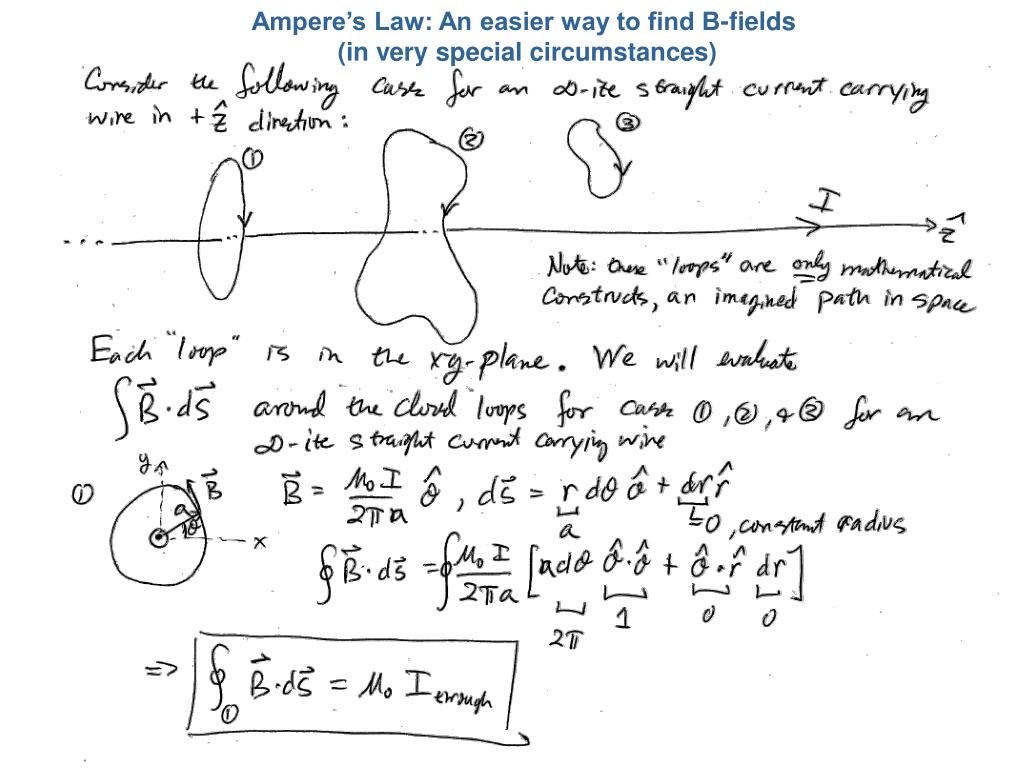 Ampere's Law: An easier way to find B-fields
(in very special circumstances)
Consider the following cases for an ∞-ite straight current carrying
wire in +ẑ direction:
① ② ③
I
... ... ... ẑ
Note: these "loops" are only mathematical
constructs, an imagined path in space
Each "loop" is in the xy-plane. We will evaluate
∫B⃗·ds⃗ around the closed loops for cases ①, ②, & ③ for an
∞-ite straight current carrying wire
① y B⃗ a θ x
B⃗ = μ₀I/2πa θ̂, ds⃗ = r dθ θ̂ + dr r̂
a =0, constant radius
∮B⃗·ds⃗ = ∮ μ₀I/2πa [a dθ θ̂·θ̂ + θ̂·r̂ dr]
2π 1 0 0
=> ∮① B⃗·ds⃗ = μ₀ I through